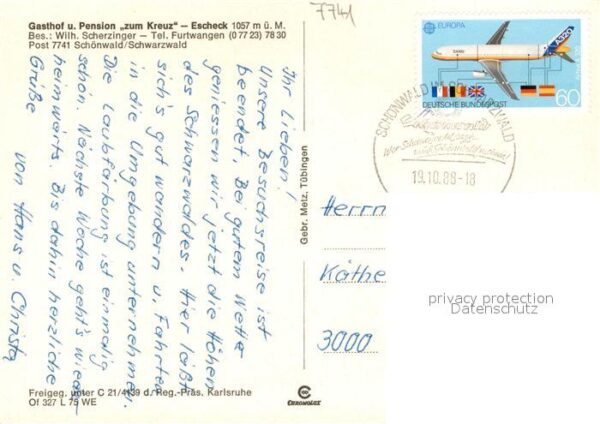 Gasthof u. Pension „zum Kreuz" – Escheck 1057 m ü. M.
Bes.: Wilh. Scherzinger – Tel. Furtwangen (0 77 23) 78 30
Post 7741 Schönwald/Schwarzwald
7741
Ihr Lieben!
Unsere Besuchsreise ist
beendet. Bei gutem Wetter
geniessen wir jetzt die Höhen
des Schwarzwaldes. Hier läßt
sich's gut wandern u. Fahrten
in die Umgebung unternehmen.
Die Laubfärbung ist einmalig
schön. Nächste Woche geht's wieder
heimwärts. Bis dahin herzliche
Grüße
von Hans u. Christa
Freigeg. unter C 21/4139 d. Reg.-Präs. Karlsruhe
Of 327 L 75 WE
Gebr. Metz, Tübingen
CHROMOLUX
EUROPA
A320
Airbus A320
DEUTSCHE BUNDESPOST
60
SCHÖNWALD IM SCHWARZWALD
19.10.88-18
Herrn
Käthe
3000
privacy protection
Datenschutz